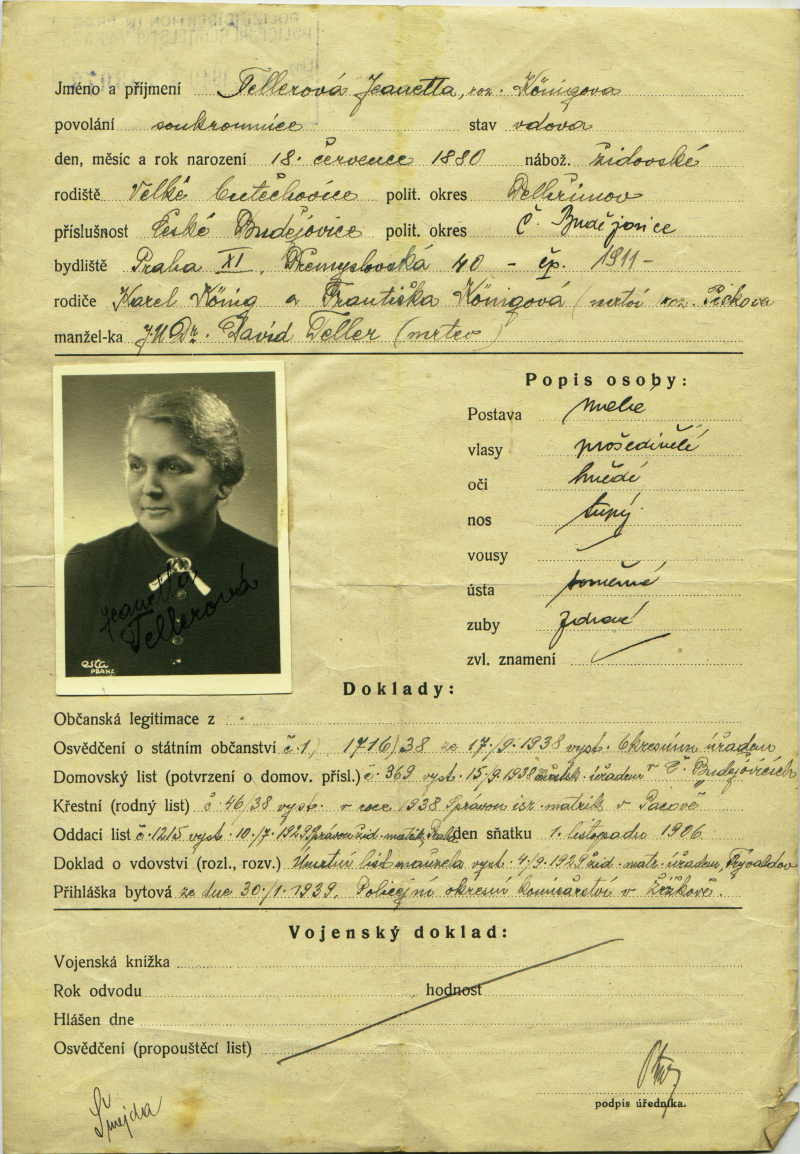 Jméno a příjmení Tellerová Jeanetta, roz. Königova
povolání soukromnice stav vdova
den, měsíc a rok narození 18. července 1880 nábož. židovské
rodiště Velké polit. okres
příslušnost České Budějovice polit. okres Č. Budějovice
bydliště Praha XI, Přemyslovská 40 – čp. 1911 –
rodiče Karel König a Františka Königová (mrtvi roz. Pickova
manžel-ka JUDr. David Teller (mrtev)
Popis osoby:
Postava
vlasy prošedivělé
oči hnědé
nos tupý
vousy
ústa souměrná
zuby zdravé
zvl. znamení
Jeanetta
Tellerová
esta
PRAHA
Doklady:
Občanská legitimace z
Osvědčení o státním občanství č. 1) 1716/38 ze 17./9. 1938 vyst. Okresním úřadem
Domovský list (potvrzení o domov. přísl.) č. 369 vyst. 15./9. 1938 úřadem v Č. Budějovicích
Křestní (rodný list) č. 46/38 vyst. v roce 1938 Správou isr. matrik v Pacově
Oddací list č. 1215 vyst. 10./7. 1929 Správou žid. matrik, den sňatku 1. listopadu 1906
Doklad o vdovství (rozl., rozv.) Úmrtní list manžela vyst. 4./9. 1929 žid. matr. úřadem, Frývaldov
Přihláška bytová ze dne 30./1. 1939. Policejní okresní komisařství v Žižkově.
Vojenský doklad:
Vojenská knížka
Rok odvodu hodnost
Hlášen dne
Osvědčení (propouštěcí list)
podpis úředníka.
Šmejda